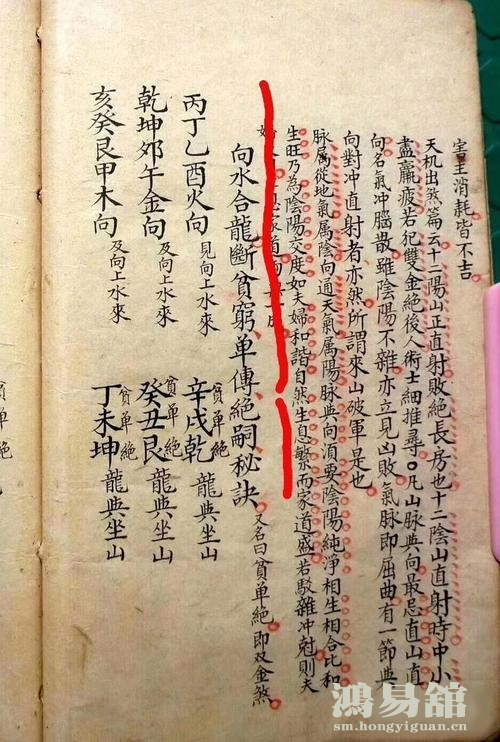 消耗皆不吉
天机出煞篇云十二陽山正直射敗絕長房也十二陰山直射時中小
盡羸疲若犯雙金絕後人術士細推尋○凡山脉與向最忌直山直
向名氣冲腦散雖陰陽不雜亦立見凶敗氣脉即屈曲有一節與
向對冲直射者亦然所謂來山破軍是也
脉属從地氣属陰向通天氣属陽脉與向湏要陰陽純淨相生相合比和
生旺乃為陰陽交度如夫婦和諧自然生息繁而家道盛若駁雜冲尅則夫
家道
向水合龍斷貧窮单傳絕嗣秘訣 又名曰貧单絕即双金煞
丙丁乙酉火向 見向上水來 貧单絕 辛戌乾龍與坐山
乾坤卯午金向 及向上水來 貧单絕 癸丑艮龍與坐山
亥癸艮甲木向 及向上水來 貧单絕 丁未坤龍與坐山
鴻易舘
sm.hongyiguan.cn